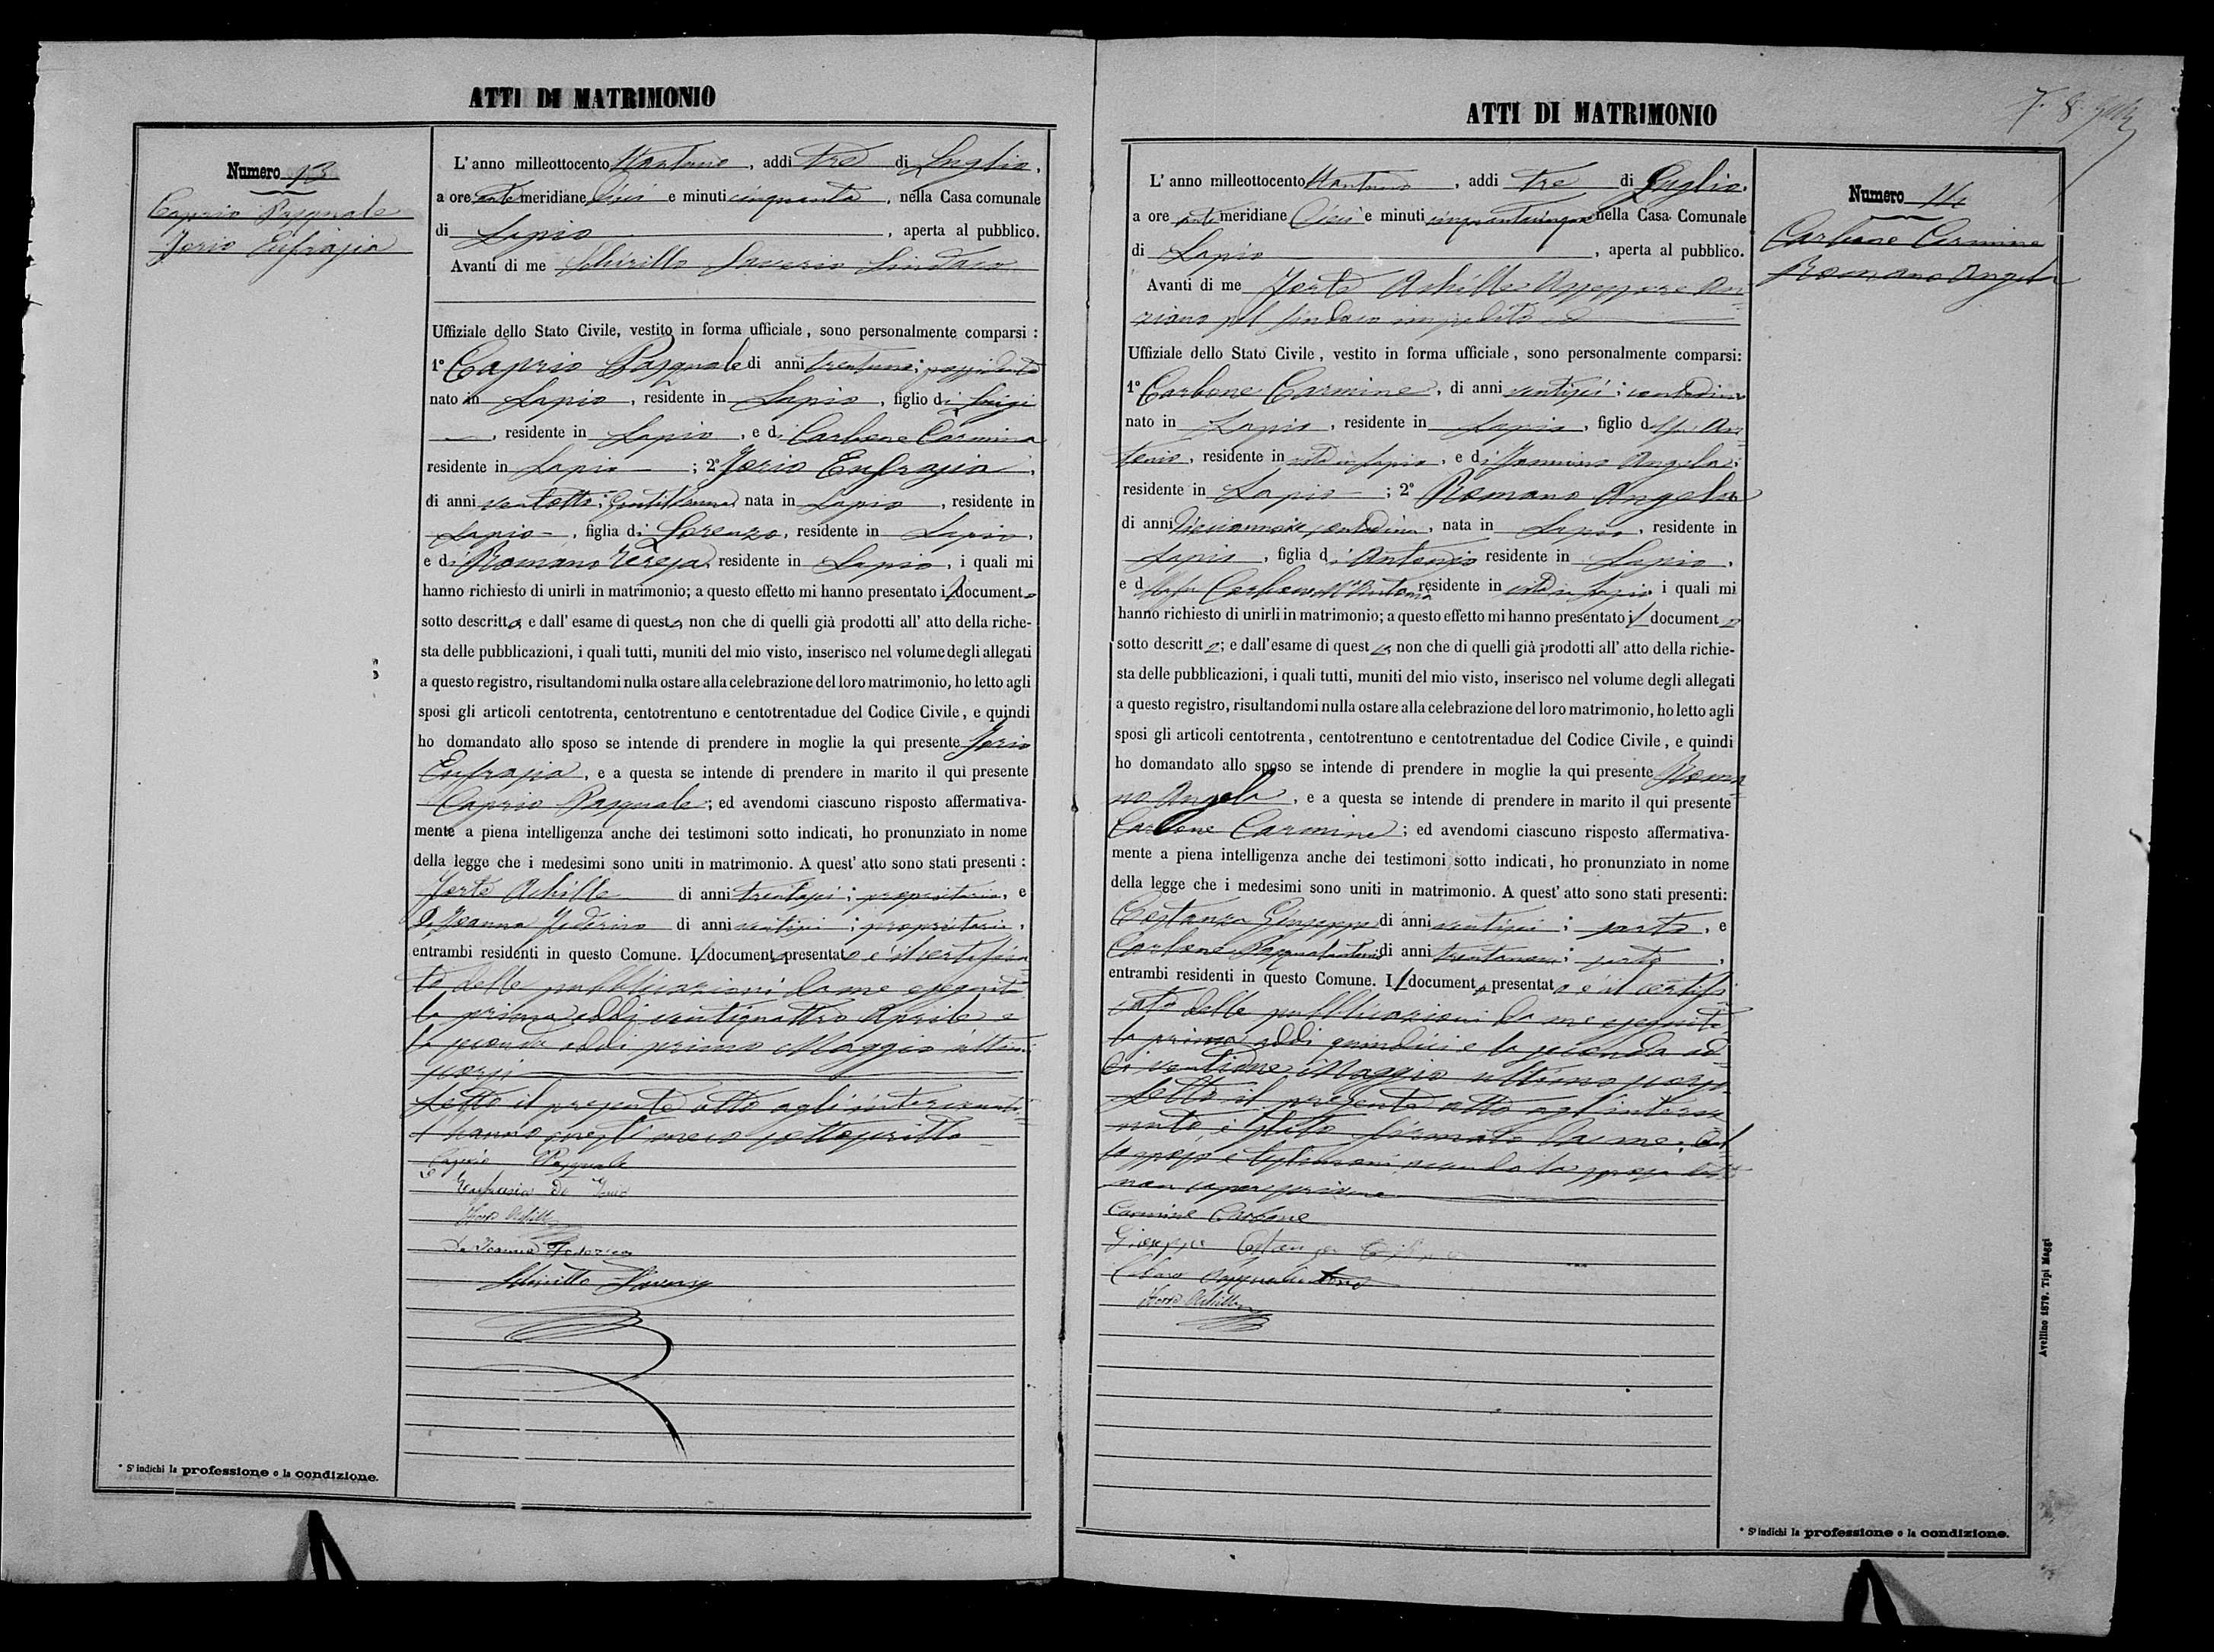 ATTI DI MATRIMONIO
Numero 13
Caprio Pasquale
Jorio Eufrasia
L' anno milleottocento ottantuno, addi tre di Luglio,
a ore antemeridiane dieci e minuti cinquanta, nella Casa comunale
di Lapio, aperta al pubblico.
Avanti di me Schirillo Saverio Sindaco
Uffiziale dello Stato Civile, vestito in forma ufficiale, sono personalmente comparsi:
1° Caprio Pasquale di anni trentuno; possidente
nato in Lapio, residente in Lapio, figlio di Luigi
, residente in Lapio, e di Carbone Carmina
residente in Lapio; 2° Jorio Eufrasia,
di anni ventotto; Gentildonna nata in Lapio, residente in
Lapio, figlia di Lorenzo, residente in Lapio,
e di Romano Teresa residente in Lapio, i quali mi
hanno richiesto di unirli in matrimonio; a questo effetto mi hanno presentato il documento
sotto descritto, e dall' esame di questo, non che di quelli già prodotti all' atto della riche-
sta delle pubblicazioni, i quali tutti, muniti del mio visto, inserisco nel volume degli allegati
a questo registro, risultandomi nulla ostare alla celebrazione del loro matrimonio, ho letto agli
sposi gli articoli centotrenta, centotrentuno e centotrentadue del Codice Civile, e quindi
ho domandato allo sposo se intende di prendere in moglie la qui presente Jorio
Eufrasia, e a questa se intende di prendere in marito il qui presente
Caprio Pasquale; ed avendomi ciascuno risposto affermativa-
mente a piena intelligenza anche dei testimoni sotto indicati, ho pronunziato in nome
della legge che i medesimi sono uniti in matrimonio. A quest' atto sono stati presenti:
Forte Achille di anni trentasei; proprietario, e
De Joanna Federico di anni ventisei; proprietario,
entrambi residenti in questo Comune. Il documento presentato è il certifica
to delle pubblicazioni da me eseguite
la prima addi ventiquattro Aprile e
la seconda addi primo Maggio ultimi
scorsi
Letto il presente atto agli intervenuti
l' hanno questi meco sottoscritto
Caprio Pasquale
Eufrasia De Jorio
Forte Achille
De Joanna Federico
Schirillo Saverio
* S' indichi la professione o la condizione.
ATTI DI MATRIMONIO
7. 8.
Numero 14
Carbone Carmine
Romano Angela
L' anno milleottocento ottantuno, addi tre di Luglio,
a ore antimeridiane dieci e minuti cinquantacinque nella Casa Comunale
di Lapio, aperta al pubblico.
Avanti di me Forte Achille Assessore An
ziano pel Sindaco impedito
Uffiziale dello Stato Civile, vestito in forma ufficiale, sono personalmente comparsi:
1° Carbone Carmine, di anni ventisei; contadino
nato in Lapio, residente in Lapio, figlio del fu An
tonio, residente in vita in Lapio, e di Jannino Angela;
residente in Lapio; 2° Romano Angela
di anni diciannove, contadina, nata in Lapio, residente in
Lapio, figlia di Antonio residente in Lapio,
e della fu Carbone Mª Antonia residente in vita in Lapio i quali mi
hanno richiesto di unirli in matrimonio; a questo effetto mi hanno presentato il documento
sotto descritto; e dall' esame di questo, non che di quelli già prodotti all' atto della richie-
sta delle pubblicazioni, i quali tutti, muniti del mio visto, inserisco nel volume degli allegati
a questo registro, risultandomi nulla ostare alla celebrazione del loro matrimonio, ho letto agli
sposi gli articoli centotrenta, centotrentuno e centotrentadue del Codice Civile, e quindi
ho domandato allo sposo se intende di prendere in moglie la qui presente Roma
no Angela, e a questa se intende di prendere in marito il qui presente
Carbone Carmine; ed avendomi ciascuno risposto affermativa-
mente a piena intelligenza anche dei testimoni sotto indicati, ho pronunziato in nome
della legge che i medesimi sono uniti in matrimonio. A quest' atto sono stati presenti:
Costanza Giuseppe di anni ventisei; sarto, e
Carbone Pasqualantonio di anni trentanove; sarto,
entrambi residenti in questo Comune. Il documento presentato è il certifi
cato delle pubblicazioni da me eseguite
la prima addi quindici e la seconda ad
di ventidue Maggio ultimo scorso
Letto il presente atto agl' interve
nuti, è stato firmato da me, dal
lo sposo e testimoni avendo la sposa detto
non saper scrivere
Carmine Carbone
Giuseppe Costanza
Carbone Pasqualantonio
Forte Achille
* S' indichi la professione o la condizione.
Avellino 1879. Tipi Maggi